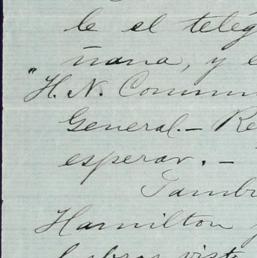 le el telég
ñana, y e
"H. N. Comm
General.- Re
esperar.-
Tamb
Hamilton